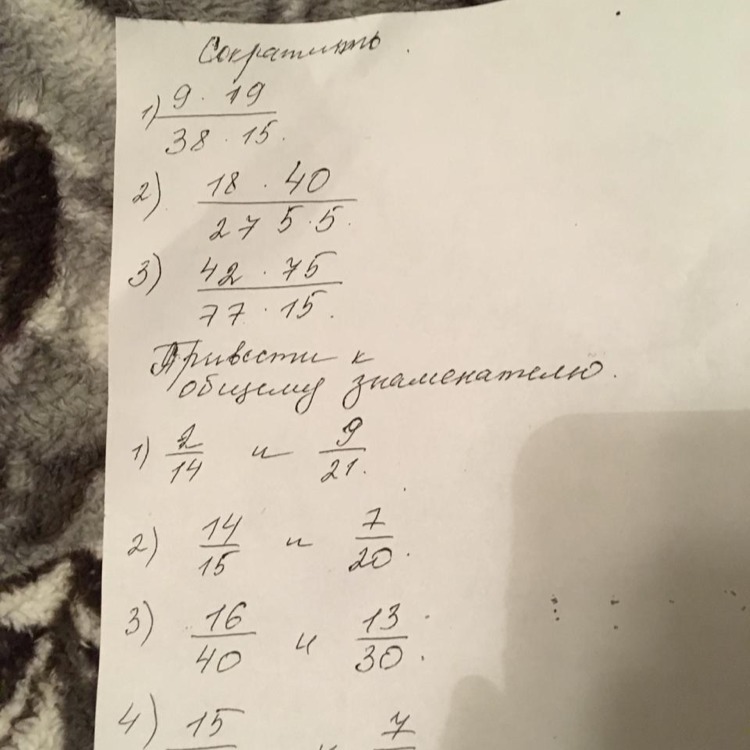 Сократить.
1) 9 · 19
38 · 15.
2) 18 · 40
27 5·5.
3) 42 · 75
77 · 15.
Привести к
общему знаменателю.
1) 2/14 и 9/21.
2) 14/15 и 7/20.
3) 16/40 и 13/30.
4) 15 и 7